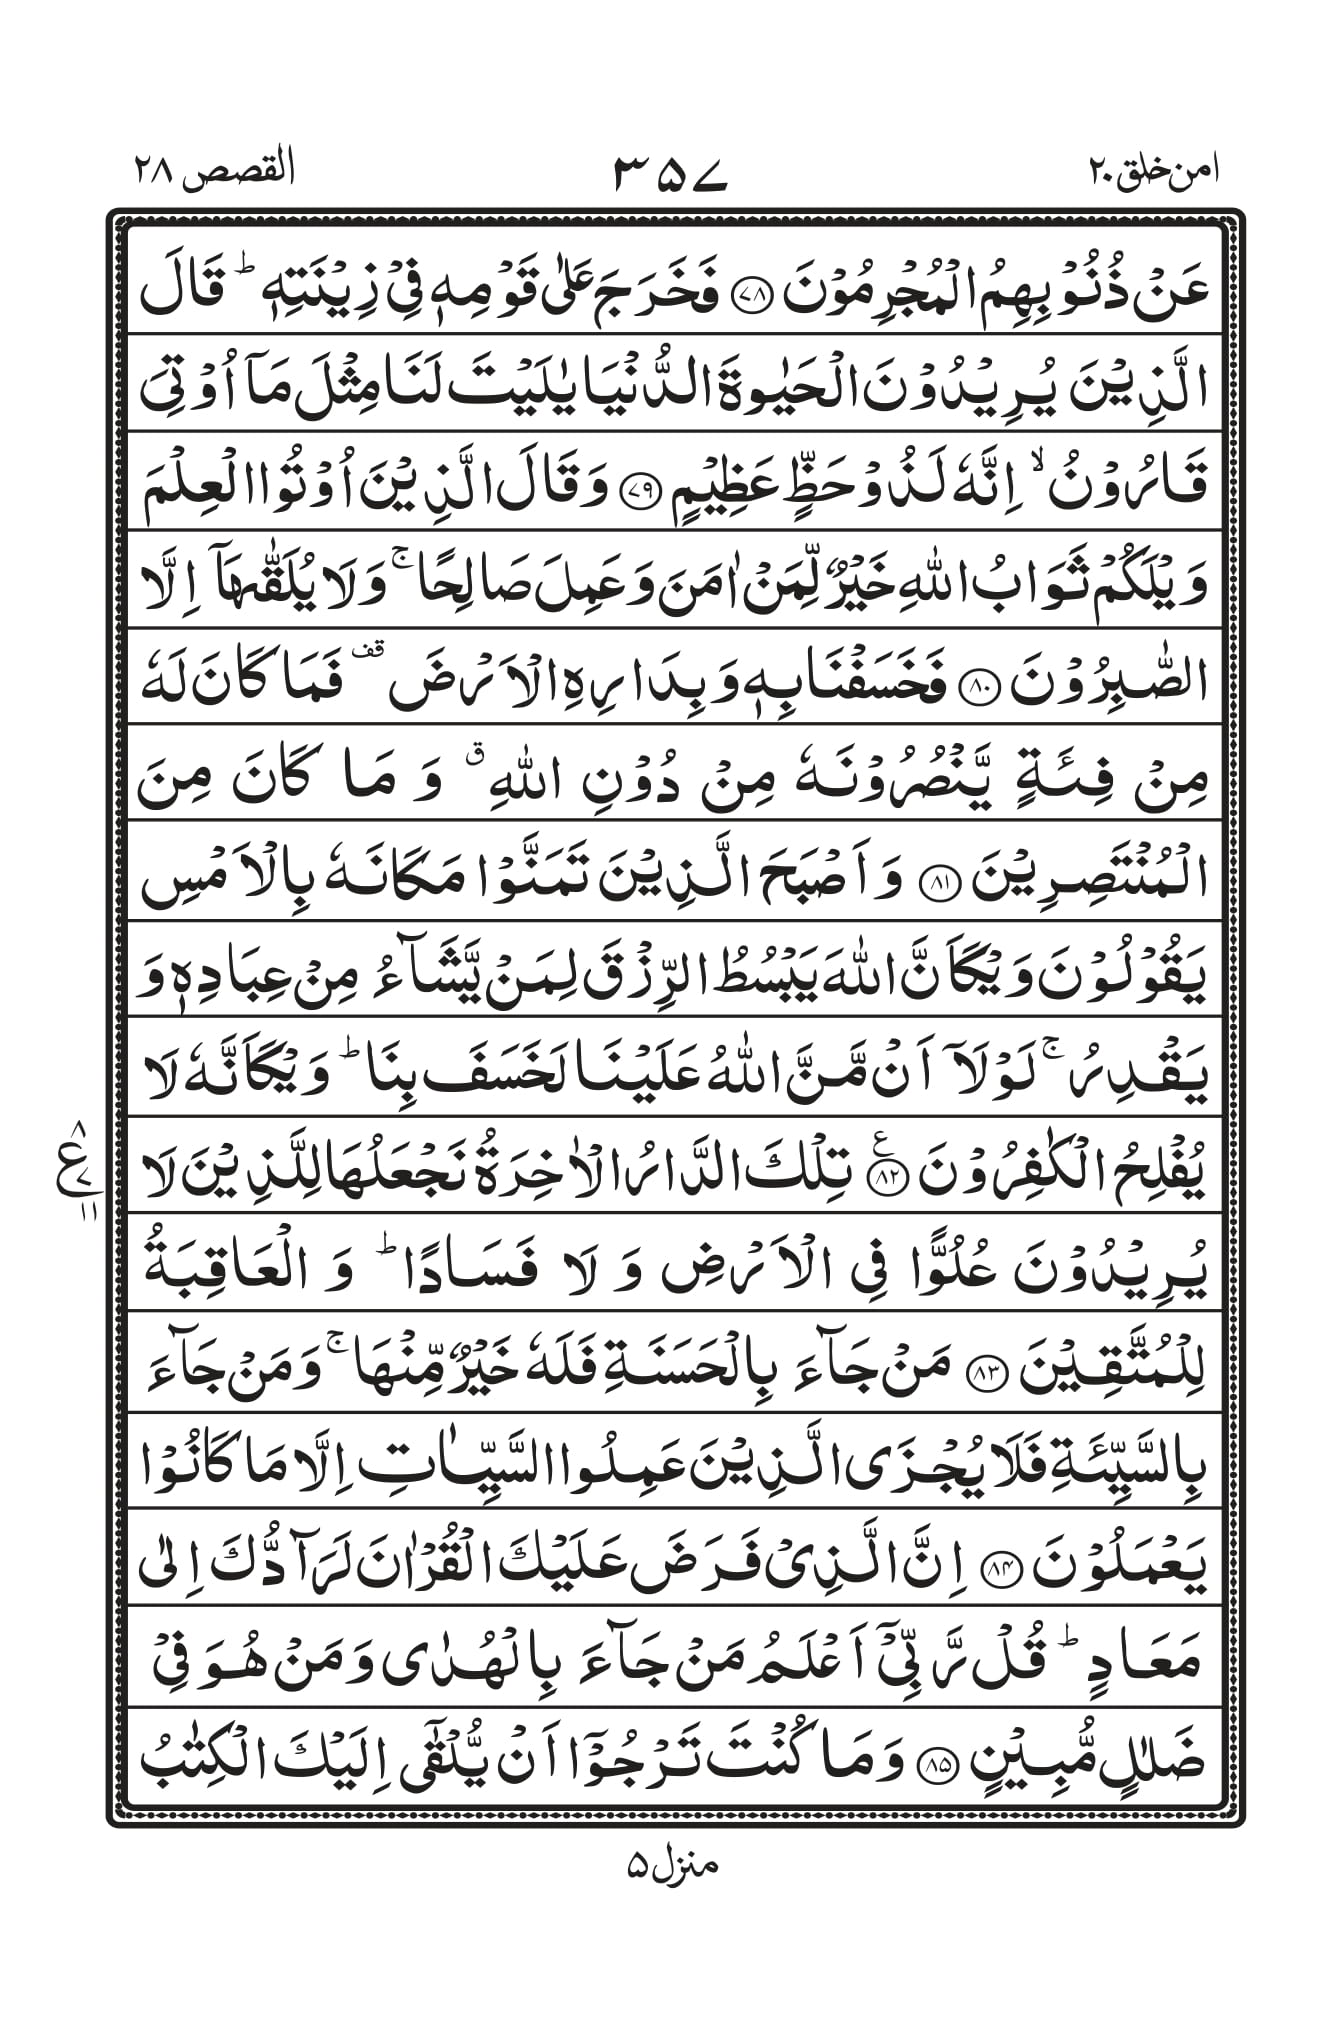 امن خلق ٢٠ ٣٥٧ القصص ٢٨
عَنْ ذُنُوْبِهِمُ الْمُجْرِمُوْنَ ﴿۷۸﴾ فَخَرَجَ عَلٰى قَوْمِهٖ فِيْ زِيْنَتِهٖ ؕ قَالَ
الَّذِيْنَ يُرِيْدُوْنَ الْحَيٰوةَ الدُّنْيَا يٰلَيْتَ لَنَا مِثْلَ مَاۤ اُوْتِيَ
قَارُوْنُ ۙ اِنَّهٗ لَذُوْ حَظٍّ عَظِيْمٍ ﴿۷۹﴾ وَقَالَ الَّذِيْنَ اُوْتُوا الْعِلْمَ
وَيْلَكُمْ ثَوَابُ اللّٰهِ خَيْرٌ لِّمَنْ اٰمَنَ وَعَمِلَ صَالِحًا ۚ وَلَا يُلَقّٰىهَاۤ اِلَّا
الصّٰبِرُوْنَ ﴿۸۰﴾ فَخَسَفْنَا بِهٖ وَبِدَارِهِ الْاَرْضَ ۫ فَمَا كَانَ لَهٗ
مِنْ فِئَةٍ يَّنْصُرُوْنَهٗ مِنْ دُوْنِ اللّٰهِ ۗ وَ مَا كَانَ مِنَ
الْمُنْتَصِرِيْنَ ﴿۸۱﴾ وَ اَصْبَحَ الَّذِيْنَ تَمَنَّوْا مَكَانَهٗ بِالْاَمْسِ
يَقُوْلُوْنَ وَيْكَاَنَّ اللّٰهَ يَبْسُطُ الرِّزْقَ لِمَنْ يَّشَآءُ مِنْ عِبَادِهٖ وَ
يَقْدِرُ ۚ لَوْلَاۤ اَنْ مَّنَّ اللّٰهُ عَلَيْنَا لَخَسَفَ بِنَا ؕ وَيْكَاَنَّهٗ لَا
يُفْلِحُ الْكٰفِرُوْنَ ﴿۸۲﴾ ع تِلْكَ الدَّارُ الْاٰخِرَةُ نَجْعَلُهَا لِلَّذِيْنَ لَا
۸ ع ۷ ۱۱
يُرِيْدُوْنَ عُلُوًّا فِي الْاَرْضِ وَ لَا فَسَادًا ؕ وَ الْعَاقِبَةُ
لِلْمُتَّقِيْنَ ﴿۸۳﴾ مَنْ جَآءَ بِالْحَسَنَةِ فَلَهٗ خَيْرٌ مِّنْهَا ۚ وَمَنْ جَآءَ
بِالسَّيِّئَةِ فَلَا يُجْزَى الَّذِيْنَ عَمِلُوا السَّيِّاٰتِ اِلَّا مَا كَانُوْا
يَعْمَلُوْنَ ﴿۸۴﴾ اِنَّ الَّذِيْ فَرَضَ عَلَيْكَ الْقُرْاٰنَ لَرَآدُّكَ اِلٰى
مَعَادٍ ؕ قُلْ رَّبِّيْۤ اَعْلَمُ مَنْ جَآءَ بِالْهُدٰى وَمَنْ هُوَ فِيْ
ضَلٰلٍ مُّبِيْنٍ ﴿۸۵﴾ وَمَا كُنْتَ تَرْجُوْۤا اَنْ يُّلْقٰۤى اِلَيْكَ الْكِتٰبُ
منزل ۵